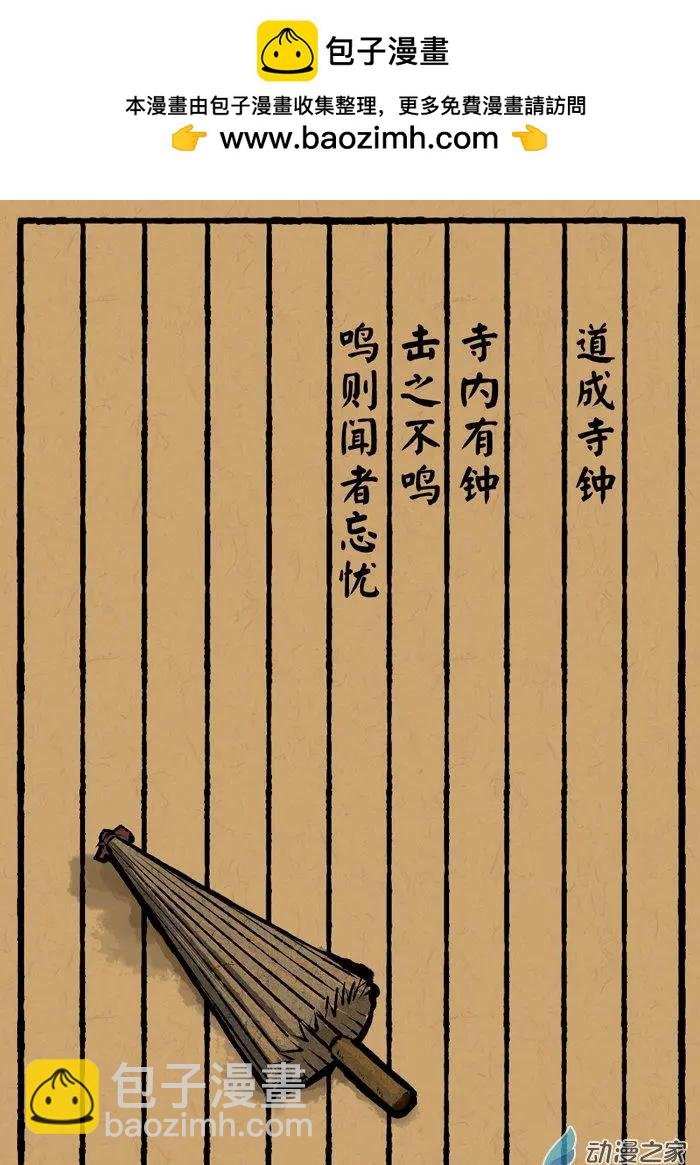 包子漫畫
本漫畫由包子漫畫收集整理，更多免費漫畫請訪問
www.baozimh.com
道成寺钟
寺内有钟
击之不鸣
鸣则闻者忘忧
包子漫畫
baozimh.com
动漫之家